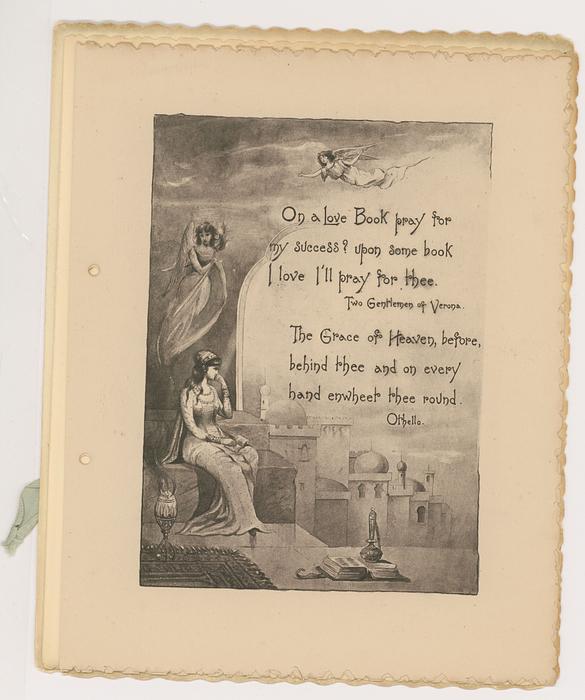 On a Love Book pray for
my success? upon some book
I love I'll pray for thee.
Two Gentlemen of Verona.
The Grace of Heaven, before,
behind thee and on every
hand enwheel thee round.
Othello.